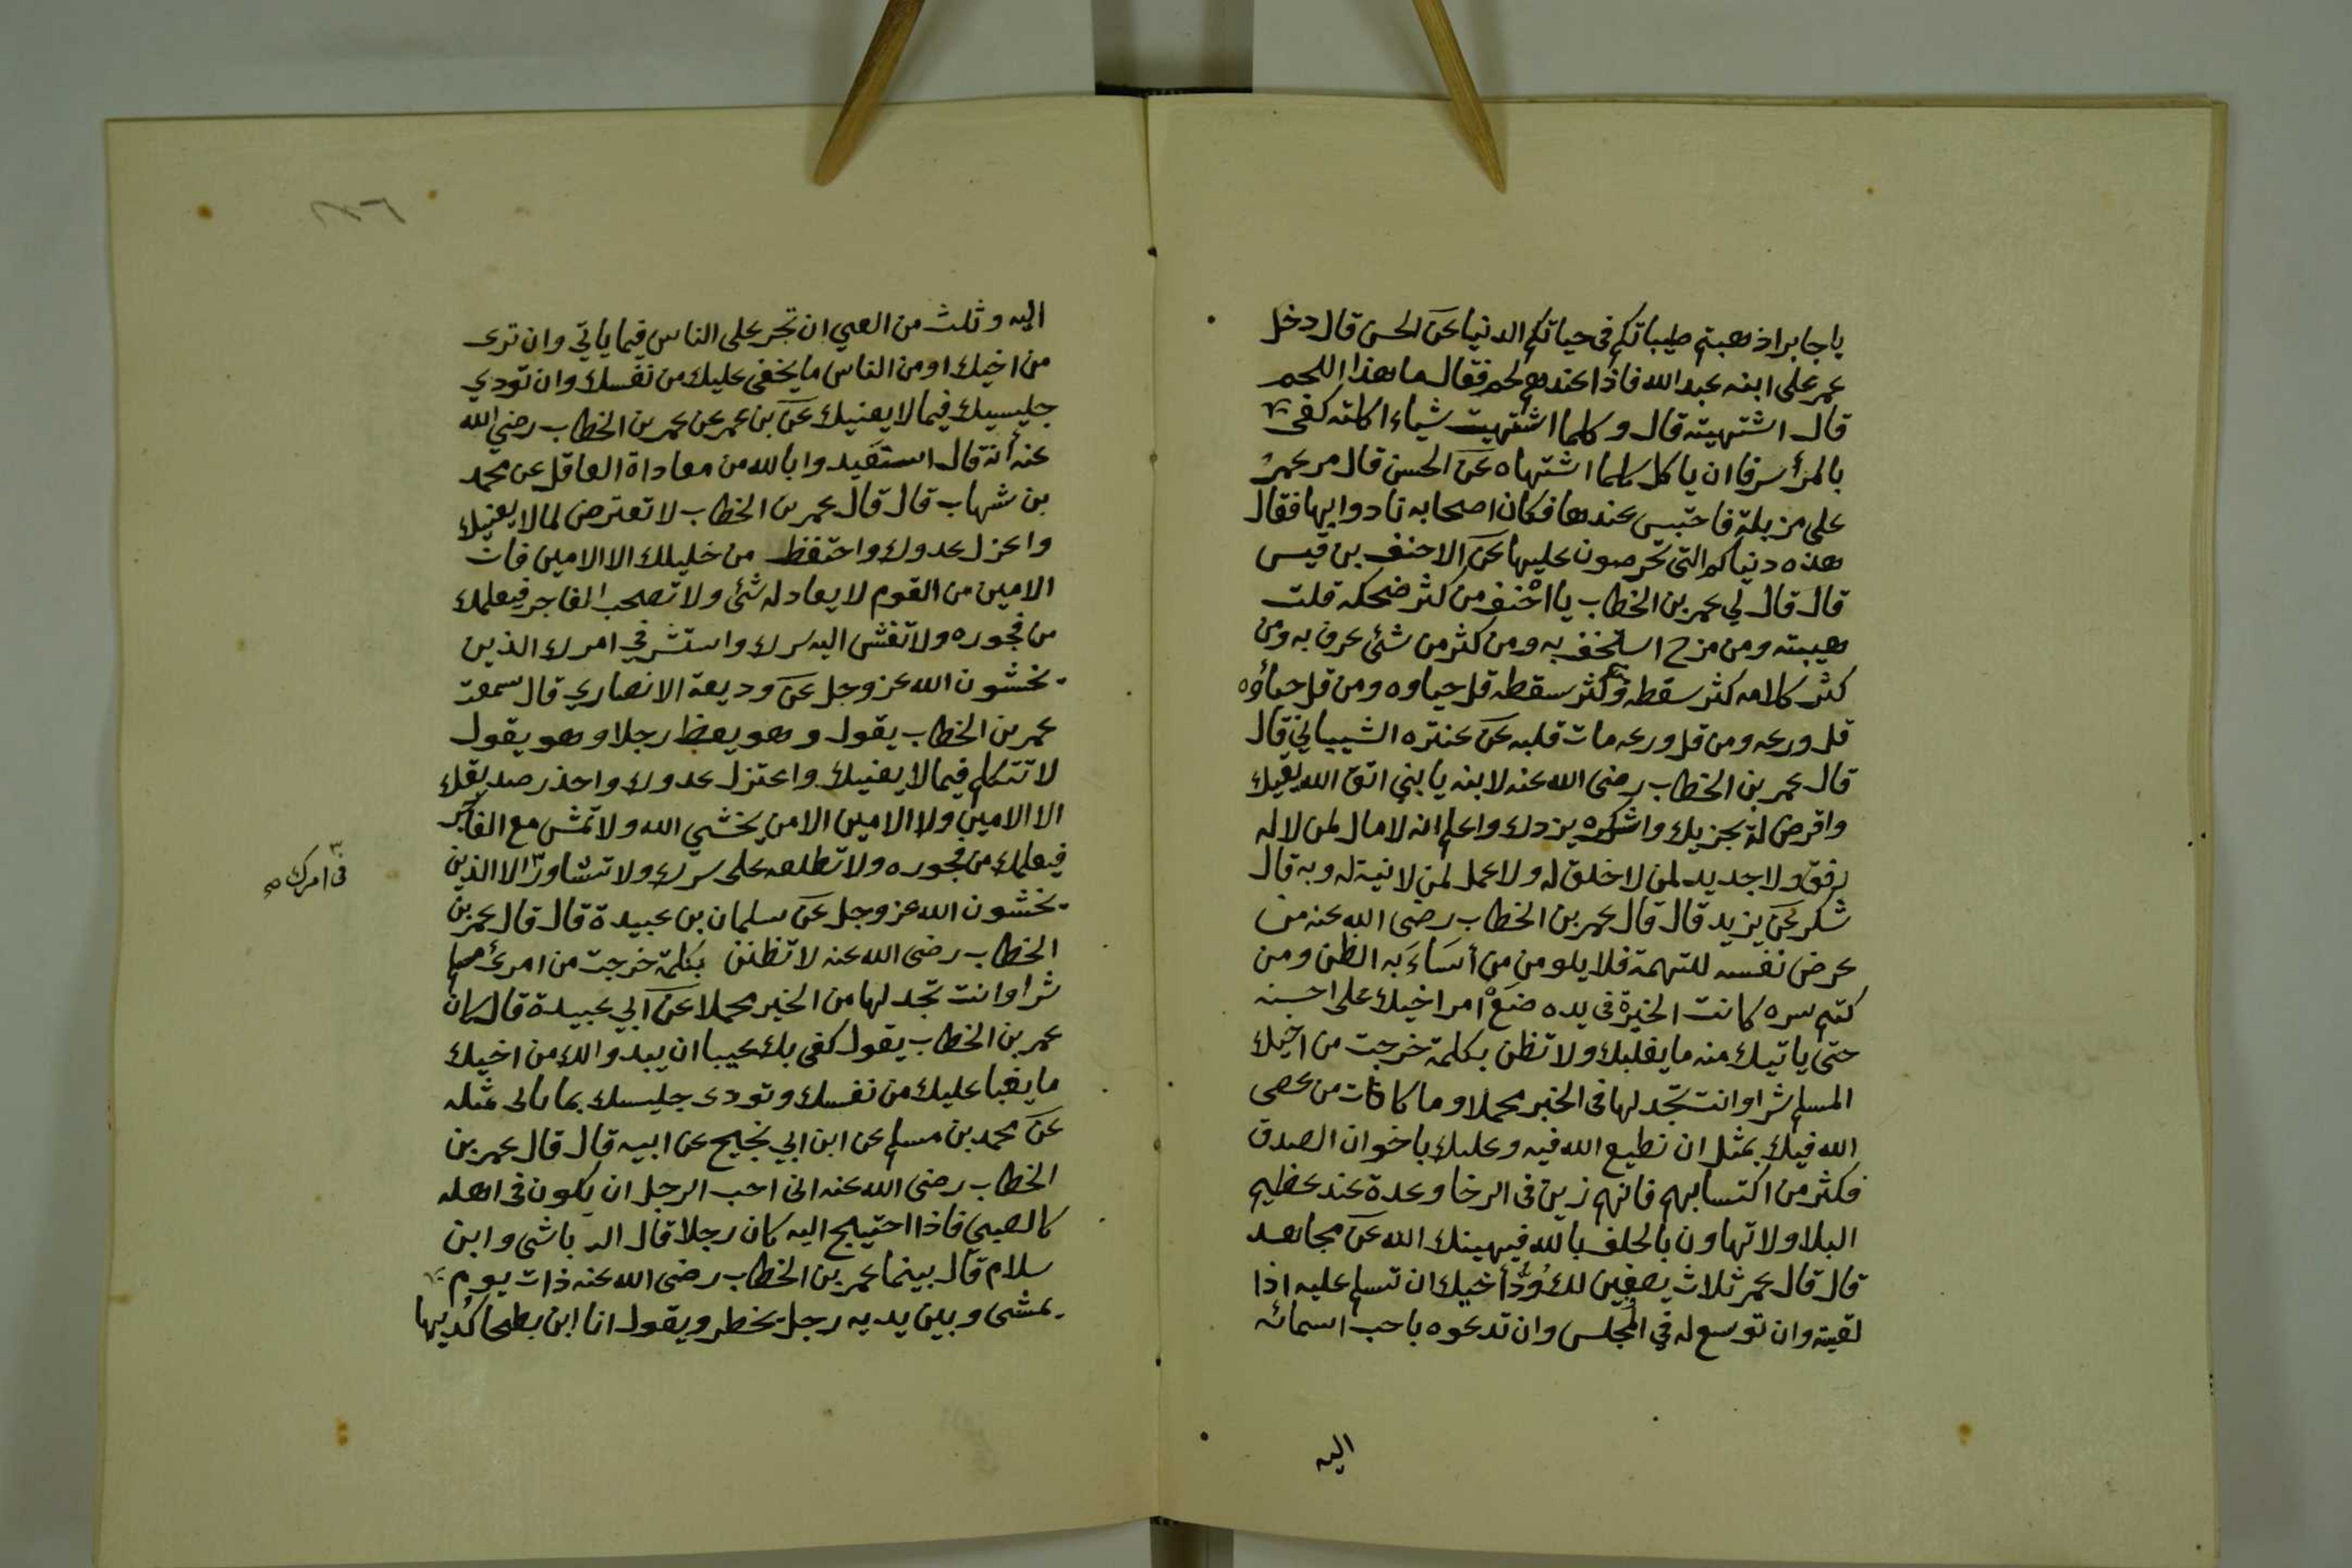 يا جابر اذهبتم طيباتكم في حياتكم الدنيا عن الحسن قال دخل
عمر على ابنه عبد الله فاذا عندهم لحم فقال ما هذا اللحم
قال اشتهيته قال وكلما اشتهيت شياء اكلته كفى
بالمرأ سرفا ان ياكل كلما اشتهاه عن الحسن قال مر عمر
على مزبلة فاحتبس عندها فكان اصحابه تاذوا بها فقال
هذه دنياكم التي تحرصون عليها عن الاحنف بن قيس
قال قال لي عمر بن الخطاب يا احنف من كثر ضحكه قلت
هيبته ومن مزح استخف به ومن كثر من شئ عرف به ومن
كثر كلامه كثر سقطه وكثر سقطه قل حياوه ومن قل حياؤه
قل ورعه ومن قل ورعه مات قلبه عن عنتره الشيباني قال
قال عمر بن الخطاب رضى الله عنه لابنه يا بني اتق الله يقيك
واقرض لله يجزيك واشكره يزدك واعلم انه لا مال لمن لا له
رفق ولا جديد لمن لا خلق له ولا عمل لمن لا نية له وبه قال
شكر عن يزيد قال قال عمر بن الخطاب رضى الله عنه من
عرض نفسه للتهمة فلا يلومن من أساءَ به الظن ومن
كتم سره كانت الخيرة في يده ضعْ امر اخيك على احسنه
حتى ياتيك منه ما يغلبك ولا تظن بكلمة خرجت من اخيك
المسلم شرا وانت تجد لها في الخير محملا وما كافات من عصى
الله فيك بمثل ان تطيع الله فيه وعليك باخوان الصدق
فكثر من اكتسابهم فانهم زين في الرخا وعدة عند عظيم
البلا ولا تهاون بالحلف بالله فيهينك الله عن مجاهد
قال قال عمر ثلاث يصفين لك وُدَّ أخيك ان تسلم عليه اذا
لقيته وان توسع له في المجلس وان تدعوه باحب اسمائه
اليه
اليه وثلث من العي ان تجر على الناس فيما ياتي وان ترى
من اخيك او من الناس ما يخفى عليك من نفسك وان تودي
جليسيك فيما لا يعنيك عن بن عمر عن عمر بن الخطاب رضي الله
عنه أنه قال استعيدوا بالله من معاداة العاقل عن محمد
بن شهاب قال قال عمر بن الخطاب لا تعترض لما لا يعنيك
واعزل عدوك واحتفظ من خليلك الا الامين فان
الامين من القوم لا يعادله شئ ولا تصحب الفاجر فيعلمك
من فجوره ولا تفش اليه سرك واستشر في امرك الذين
يخشون الله عز وجل عن وديعة الانصاري قال سمعت
عمر بن الخطاب يقول وهو يعظ رجلا وهو يقول
لا تتكلم فيما لا يعنيك واعتزل عدوك واحذر صديقك
الا الامين ولا الامين الا من يخشي الله ولا تمش مع الفاجر
فيعلمك من فجوره ولا تطلعه على سرك ولا تشاور٣ الا الذين
٣ في امرك صح
يخشون الله عز وجل عن سلمان بن عبيدة قال قال عمر بن
الخطاب رضى الله عنه لا تظنن بكلمة خرجت من امرئ مسلم
شرا وانت تجد لها من الخير محملا عن ابي عبيدة قال كان
عمر بن الخطاب يقول كفى بك عيبا ان يبدو الك من اخيك
ما يغبا عليك من نفسك وتودى جليسك بما تاتى مثله
عن محمد بن مسلم عن ابن ابي نجيح عن ابيه قال قال عمر بن
الخطاب رضى الله عنه انى احب الرجل ان يكون في اهله
كالصبي فاذا احتيج اليه كان رجلا قال الرياشى وابن
سلام قال بينما عمر بن الخطاب رضى الله عنه ذات يوم
يمشى وبين يديه رجل يخطر ويقول انا ابن بطحا كُديها